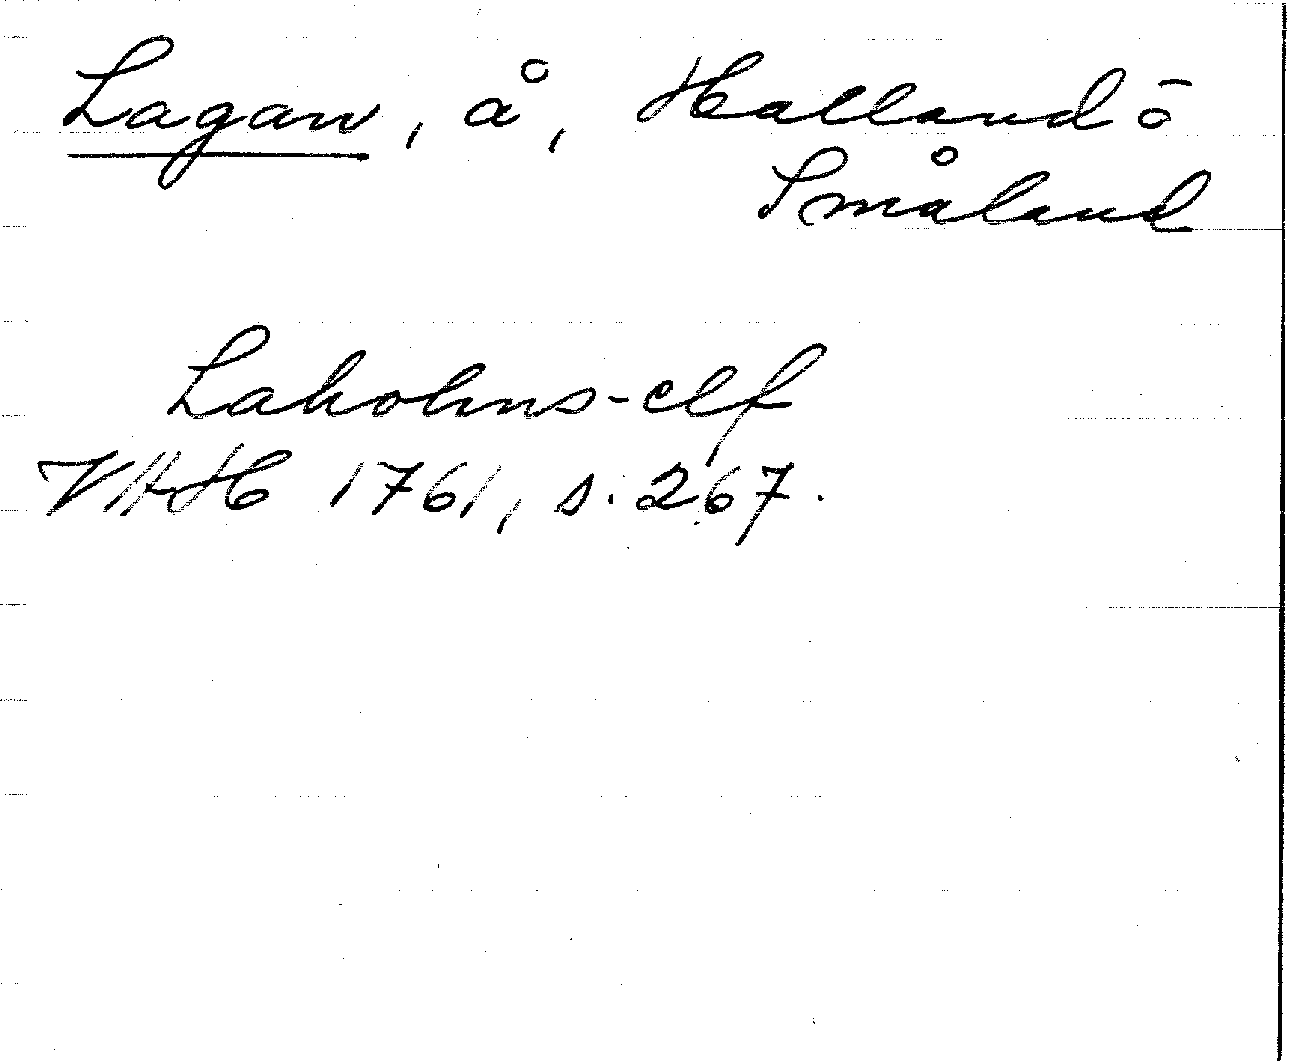 Lagan, å, Halland ō
Småland
Laholms-elf
VAH 1761, s. 267.